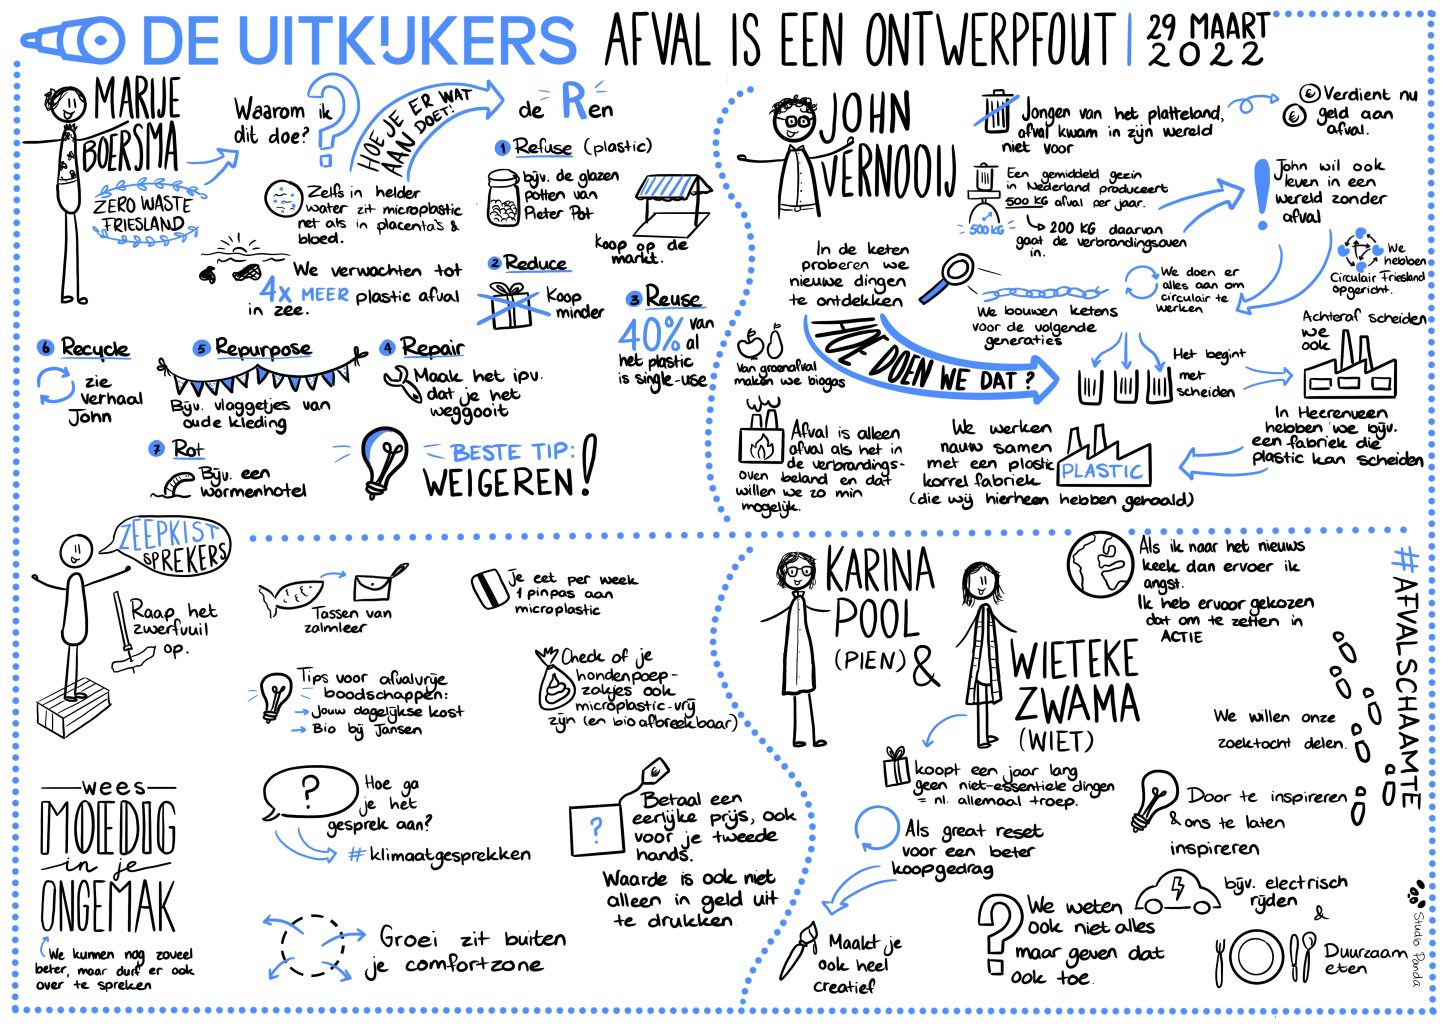 DE UITKIJKERS
AFVAL IS EEN ONTWERPFOUT
29 MAART
2022
MARIJE
BOERSMA
ZERO WASTE
FRIESLAND
Waarom ik
dit doe?
?
HOE JE ER WAT
AAN DOET!
de Ren
Zelfs in helder
water zit microplastic
net als in placenta's &
bloed.
We verwachten tot
4x MEER plastic afval
in zee.
1 Refuse (plastic)
bijv. de glazen
potten van
Pieter Pot
Koop op de
markt.
2 Reduce
Koop
minder
3 Reuse
40% van
al
het plastic
is single-use
4 Repair
Maak het ipv.
dat je het
weggooit
5 Repurpose
Bijv. vlaggetjes van
oude kleding
6 Recycle
zie
verhaal
John
7 Rot
Bijv. een
wormenhotel
BESTE TIP:
WEIGEREN!
JOHN
VERNOOIJ
Jongen van het platteland,
afval kwam in zijn wereld
niet voor
Verdient nu
geld aan
afval.
Een gemiddeld gezin
in Nederland produceert
500 KG afval per jaar.
500KG
200 KG daarvan
gaat de verbrandingsoven
in.
!
John wil ook
leven in een
wereld zonder
afval
We
hebben
Circulair Friesland
opgericht.
We doen er
alles aan om
circulair te
werken
In de keten
proberen we
nieuwe dingen
te ontdekken
We bouwen ketens
voor de volgende
generaties
HOE DOEN WE DAT?
Van groenafval
maken we biogas
Afval is alleen
afval als het in
de verbrandings-
oven beland en dat
willen we zo min
mogelijk.
Het begint
met
scheiden
Achteraf scheiden
we
ook
In Heerenveen
hebben we bijv.
een fabriek die
plastic kan scheiden
We werken
nauw samen
met een plastic
korrelfabriek
(die wij hierheen hebben gehaald)
PLASTIC
ZEEPKIST
SPREKERS
Raap het
zwerfvuil
op.
Tassen van
zalmleer
Je eet per week
1 pinpas aan
microplastic
Tips voor afvalvrije
boodschappen:
→ Jouw dagelijkse kost
→ Bio bij Jansen
Check of je
hondenpoep-
zakjes ook
microplastic-vrij
zijn (en bio afbreekbaar)
wees
MOEDIG
in je
ONGEMAK
We kunnen nog zoveel
beter, maar durf er ook
over te spreken
?
Hoe ga
je het
gesprek aan?
#klimaatgesprekken
?
€
Betaal een
eerlijke prijs, ook
voor je tweede
hands.
Waarde is ook niet
alleen in geld uit
te drukken
Groei zit buiten
je comfortzone
KARINA
POOL
(PIEN) &
WIETEKE
ZWAMA
(WIET)
Als ik naar het nieuws
keek dan ervoer ik
angst.
Ik heb ervoor gekozen
dat om te zetten in
ACTIE
#AFVALSCHAAMTE
We willen onze
zoektocht delen.
koopt een jaar lang
geen niet-essentiele dingen
= nl. allemaal troep.
Als great reset
voor een beter
koopgedrag
Maakt je
ook heel
creatief
Door te inspireren
& ons te laten
inspireren
?
We weten
ook niet alles
maar geven dat
ook toe.
bijv. electrisch
rijden
&
Duurzaam
eten
Studio Panda